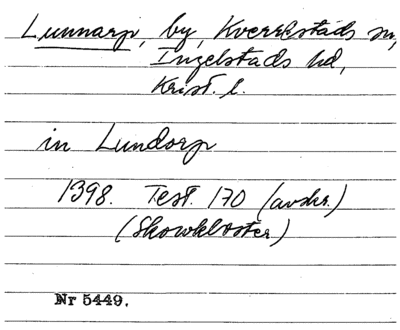 Lunnarp, by, Kverrestads sn,
Ingelstads hd,
Krist. l.
in Lundorp
1398. Test. 170 (avskr.)
(Skowkloster)
Nr 5449.